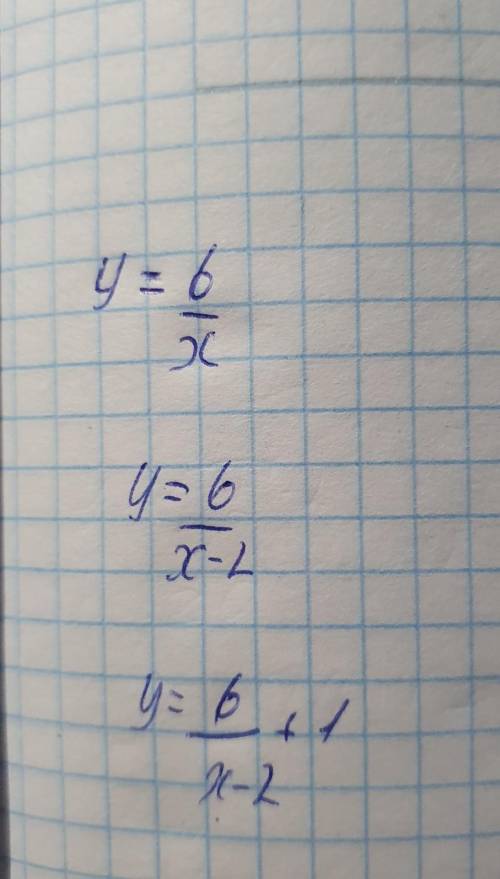 y = 6/x
y = 6/x-2
y = 6/x-2 + 1